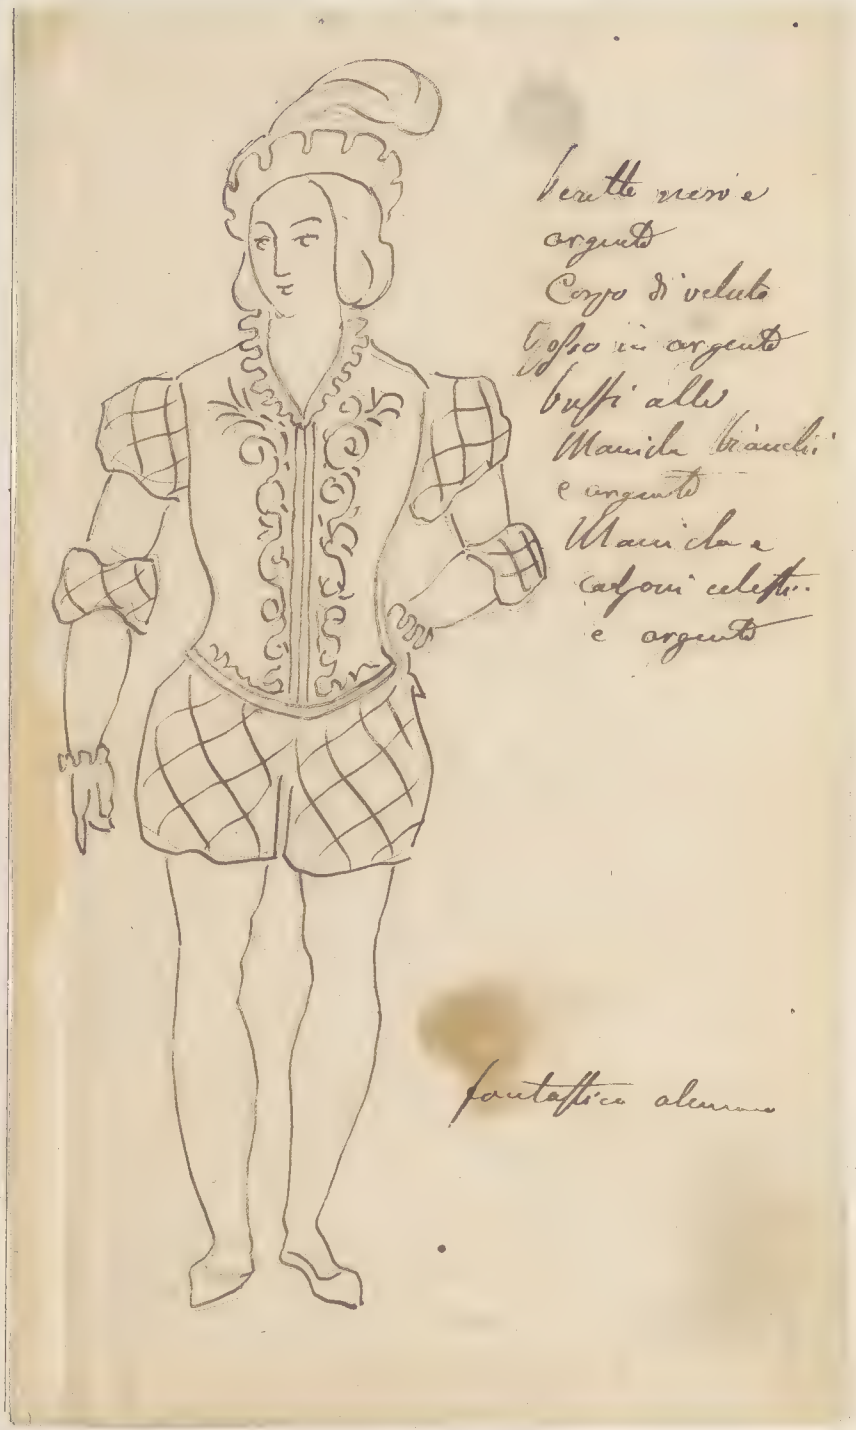 beretto nero e
argento
Corpo di veluto
in argento
buffi alle
Maniche bianchi
e argento
Maniche e
calzoni celesti
e argento
fantastico alemano